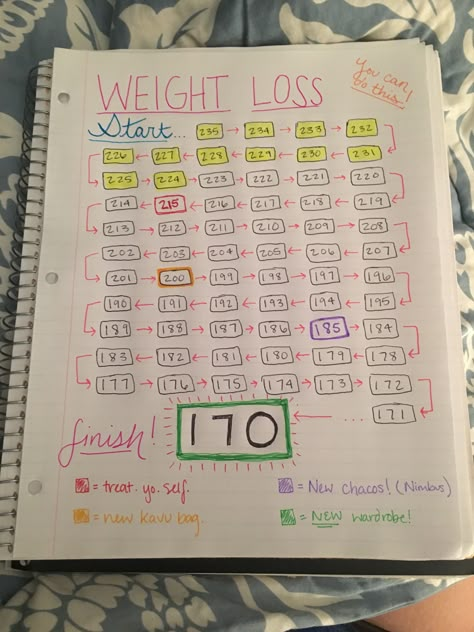 WEIGHT LOSS
You can
do this
Start... 235 → 234 → 233 → 232
226 ← 227 ← 228 ← 229 ← 230 ← 231
225 → 224 → 223 → 222 → 221 → 220
214 ← 215 ← 216 ← 217 ← 218 ← 219
213 → 212 → 211 → 210 → 209 → 208
202 ← 203 ← 204 ← 205 ← 206 ← 207
201 → 200 → 199 → 198 → 197 → 196
190 ← 191 ← 192 ← 193 ← 194 ← 195
189 → 188 → 187 → 186 → 185 → 184
183 ← 182 ← 181 ← 180 ← 179 ← 178
177 → 176 → 175 → 174 → 173 → 172
finish! 170 ← ... 171
= treat. yo. self.
= New chacos! (Nimbus)
= new kavu bag.
= NEW wardrobe!